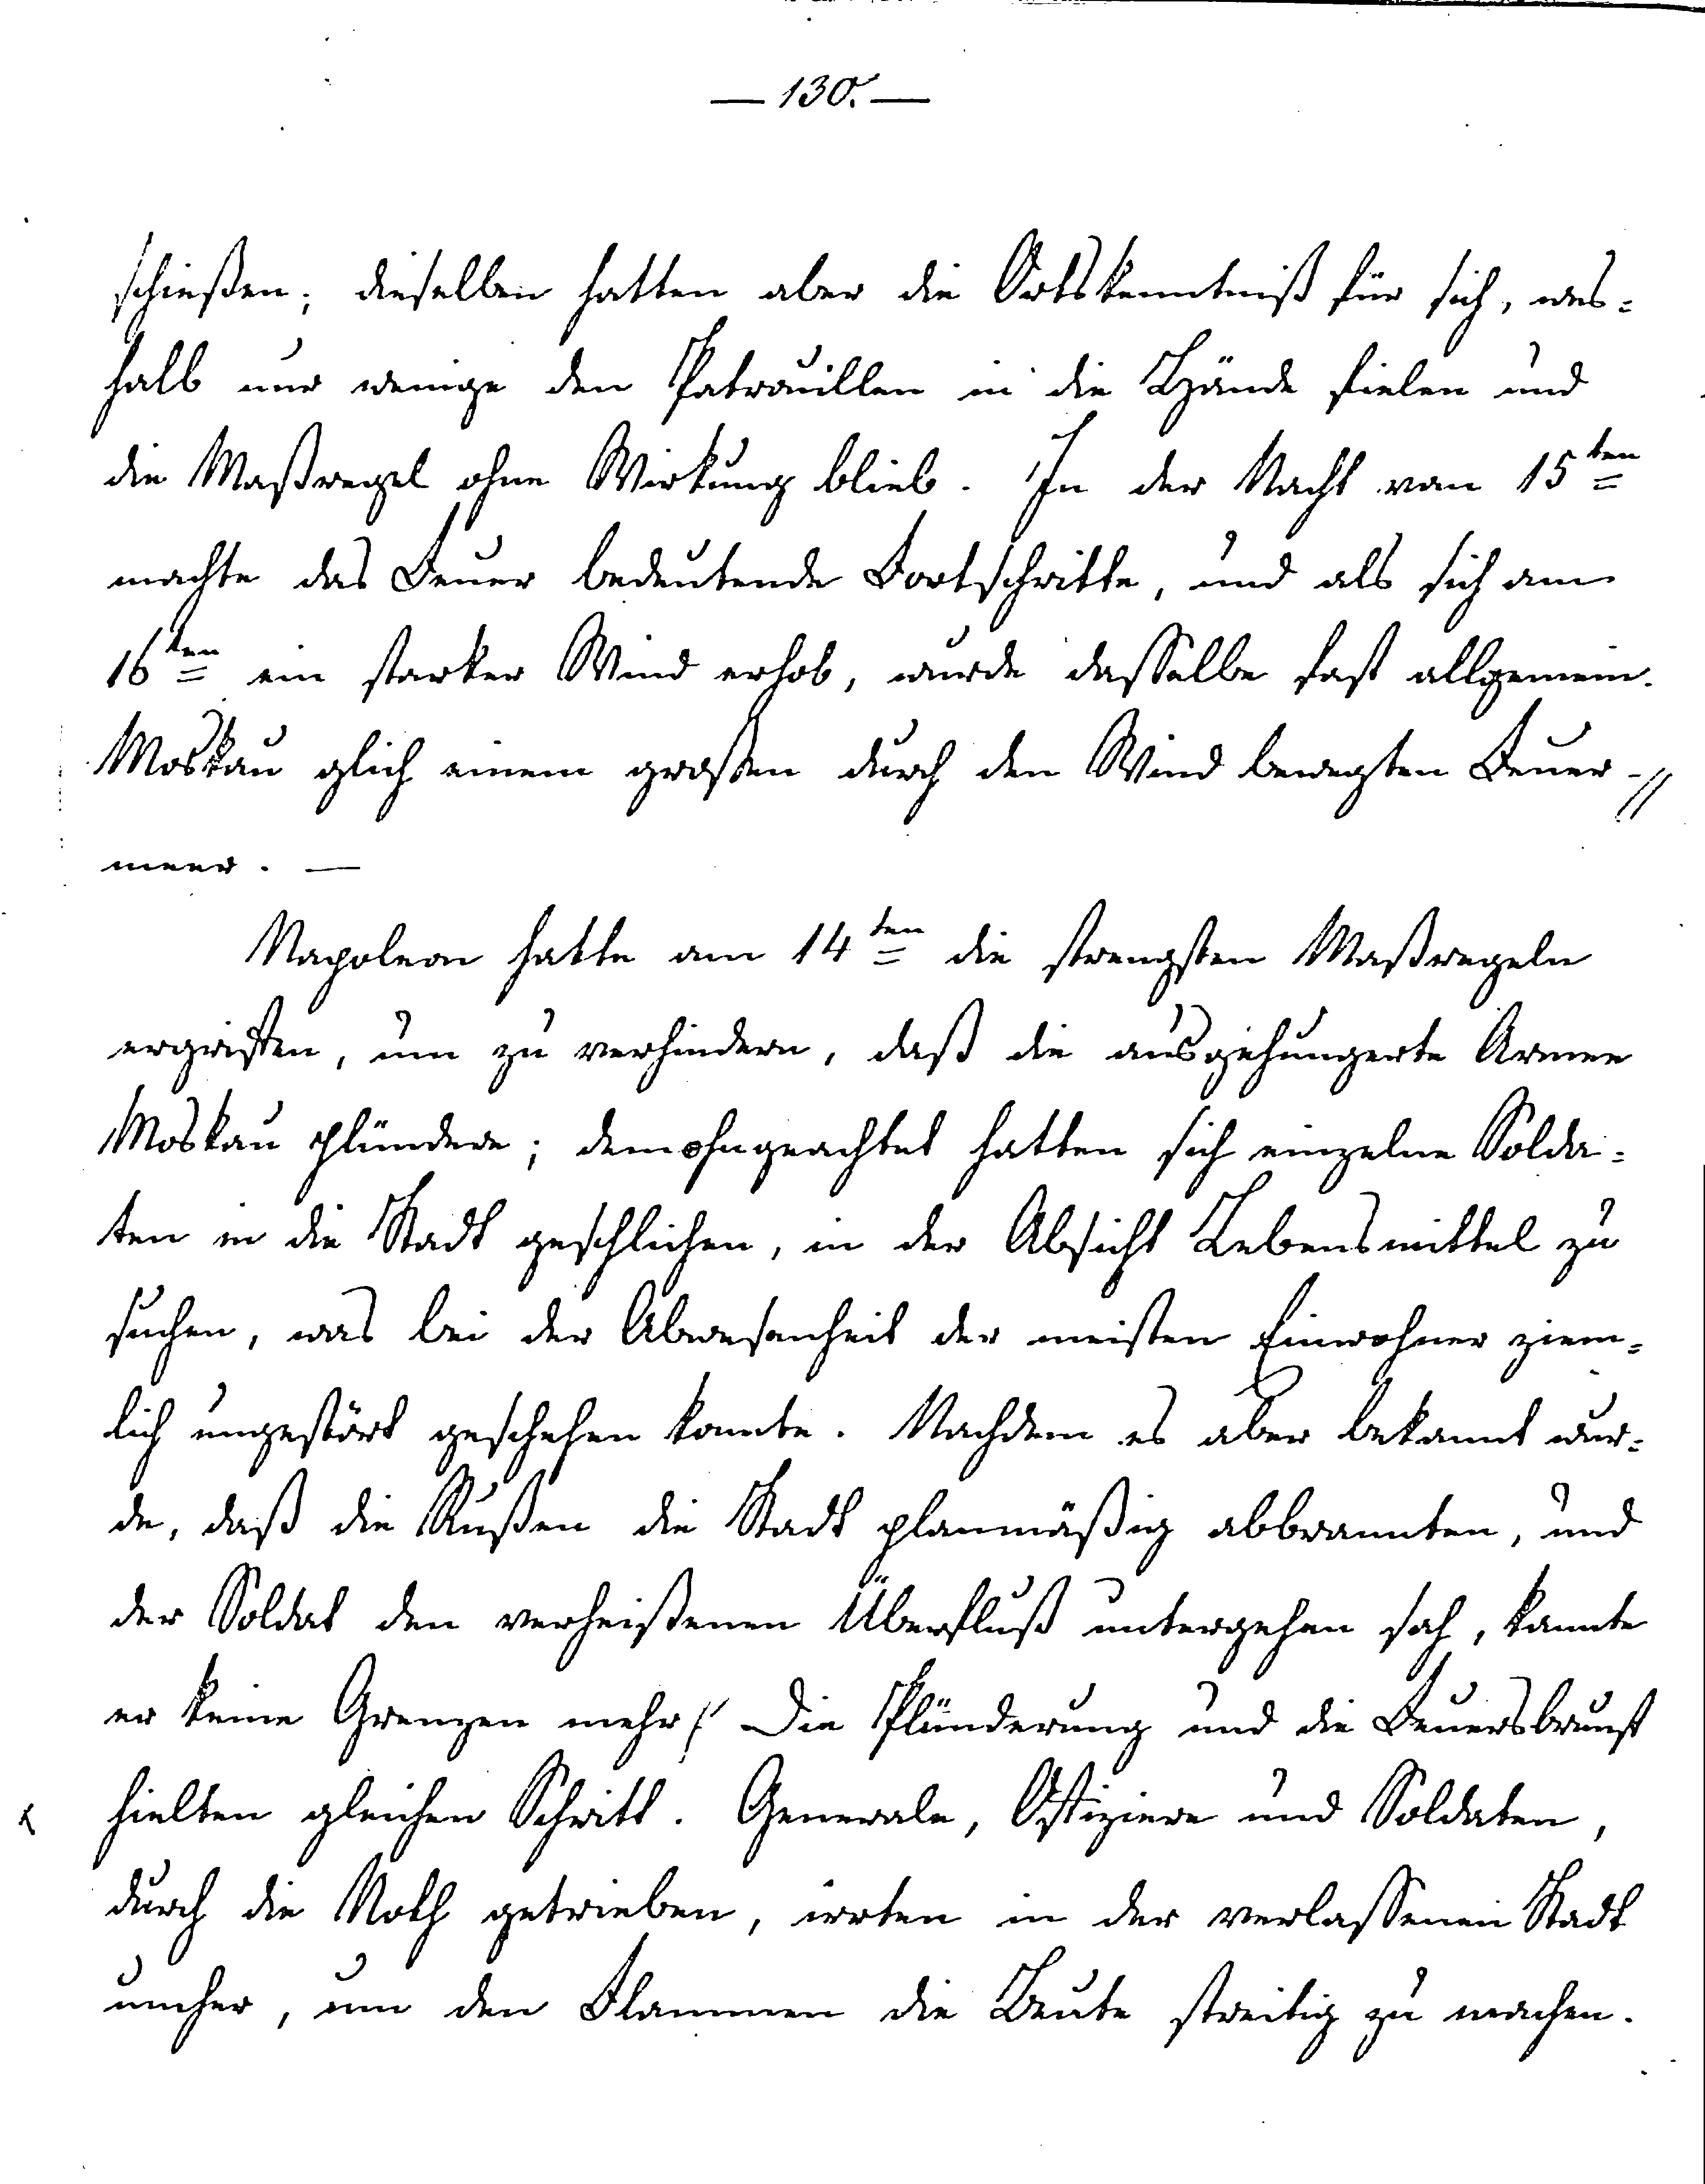 — 130. —
schießen; dieselben hatten aber die Ortskenntniß für sich, wes=
halb nur wenige den Patrouillen in die Hände fielen und
die Maßregel ohne Wirkung blieb. In der Nacht vom 15ten
machte das Feuer bedeutende Fortschritte, und als sich am
16ten ein starker Wind erhob, wurde dasselbe fast allgemein.
Moskau glich einem großen durch den Wind bewegten Feuer-//
meer. —
Napoleon hatte am 14ten die strengsten Maßregeln
ergriffen, um zu verhindern, daß die ausgehungerte Armee
Moskau plündere; demohngeachtet hatten sich einzelne Solda=
ten in die Stadt geschlichen, in der Absicht Lebensmittel zu
suchen, was bei der Abwesenheit der meisten Einwohner ziem=
lich ungestört geschehen konnte. Nachdem es aber bekannt wur=
de, daß die Rußen die Stadt planmäßig abbrannten, und
der Soldat den verheißenen Überfluß untergehen sah, kannte
er keine Grenzen mehr! Die Plünderung und die Feuersbrunst
hielten gleichen Schritt. Generale, Offiziere und Soldaten,
durch die Noth getrieben, irrten in der verlassenen Stadt
umher, um den Flammen die Beute streitig zu machen.